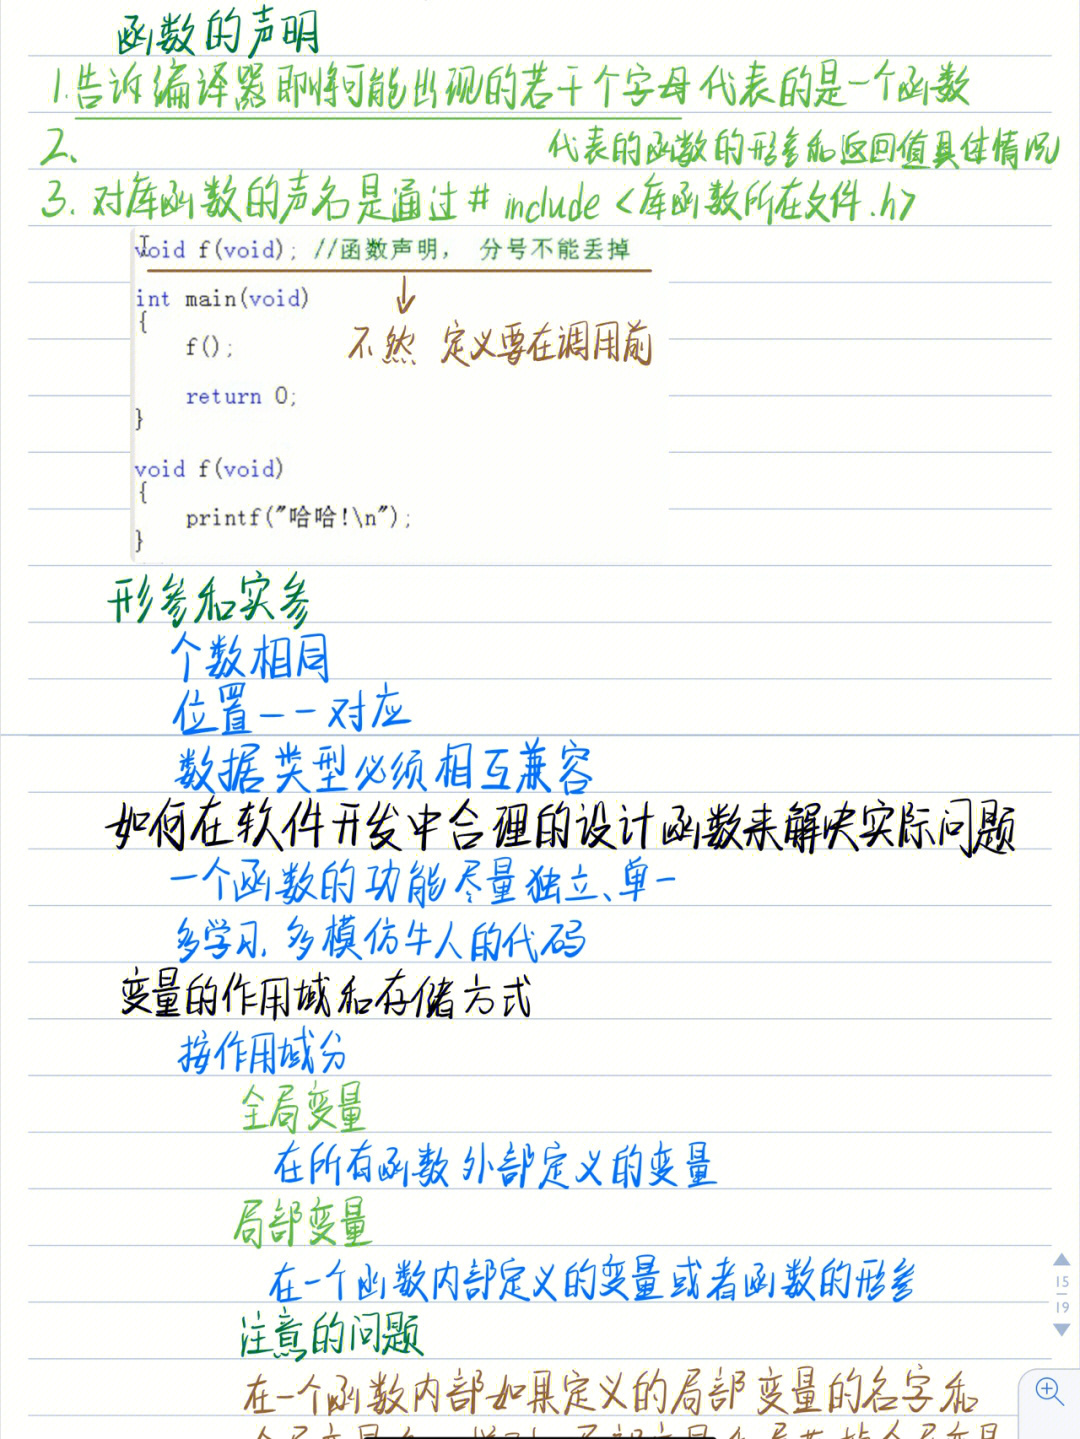 函数的声明
1.告诉编译器即将可能出现的若干个字母代表的是一个函数
2、 代表的函数的形参和返回值具体情况
3. 对库函数的声名是通过# include <库函数所在文件.h>
void f(void); //函数声明， 分号不能丢掉
int main(void)
{
f();
不然 定义要在调用前
return 0;
}
void f(void)
{
printf("哈哈!\n");
}
形参和实参
个数相同
位置一一对应
数据类型必须相互兼容
如何在软件开发中合理的设计函数来解决实际问题
一个函数的功能尽量独立、单一
多学习, 多模仿牛人的代码
变量的作用域和存储方式
按作用域分
全局变量
在所有函数外部定义的变量
局部变量
在一个函数内部定义的变量或者函数的形参
注意的问题
在一个函数内部如果定义的局部变量的名字和
15
19